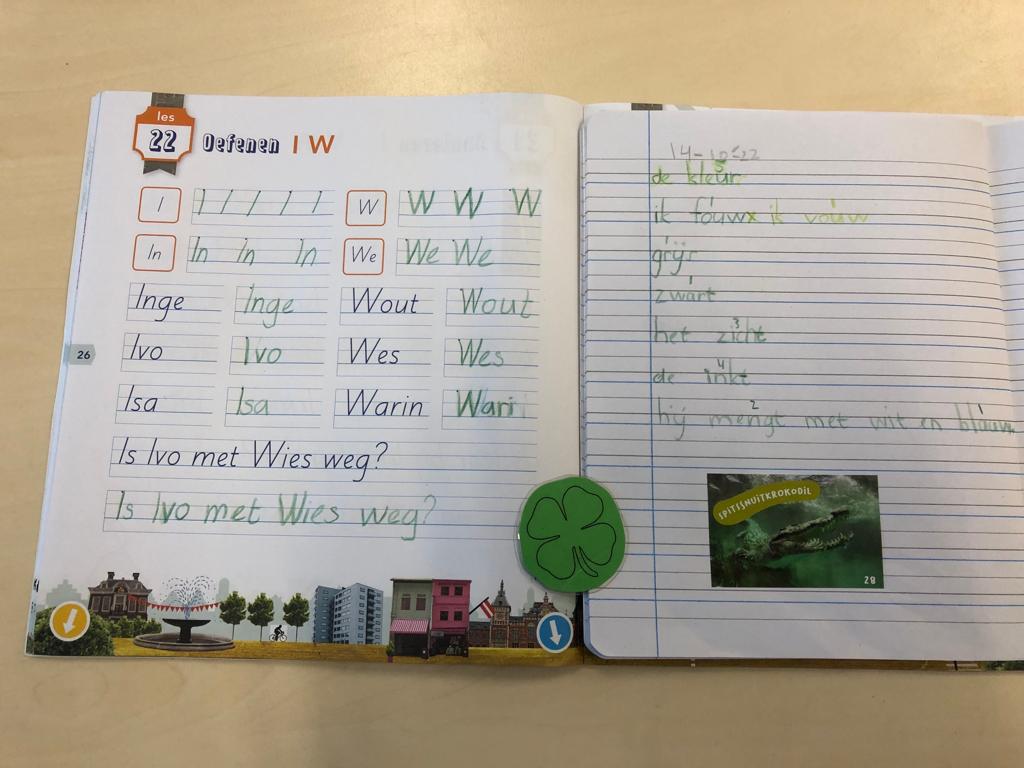 les
22 Oefenen I W
I I I I I I W W W W
In In in In We We We
Inge Inge Wout Wout
Ivo Ivo Wes Wes
26
Isa Isa Warin Wari
Is Ivo met Wies weg?
Is Ivo met Wies weg?
14-10-22
de kleur
ik fouw x ik vouw
grijs
zwart
het zicht
de inkt
hij mengt met wit en blauw
SPITSSNUITKROKODIL
28